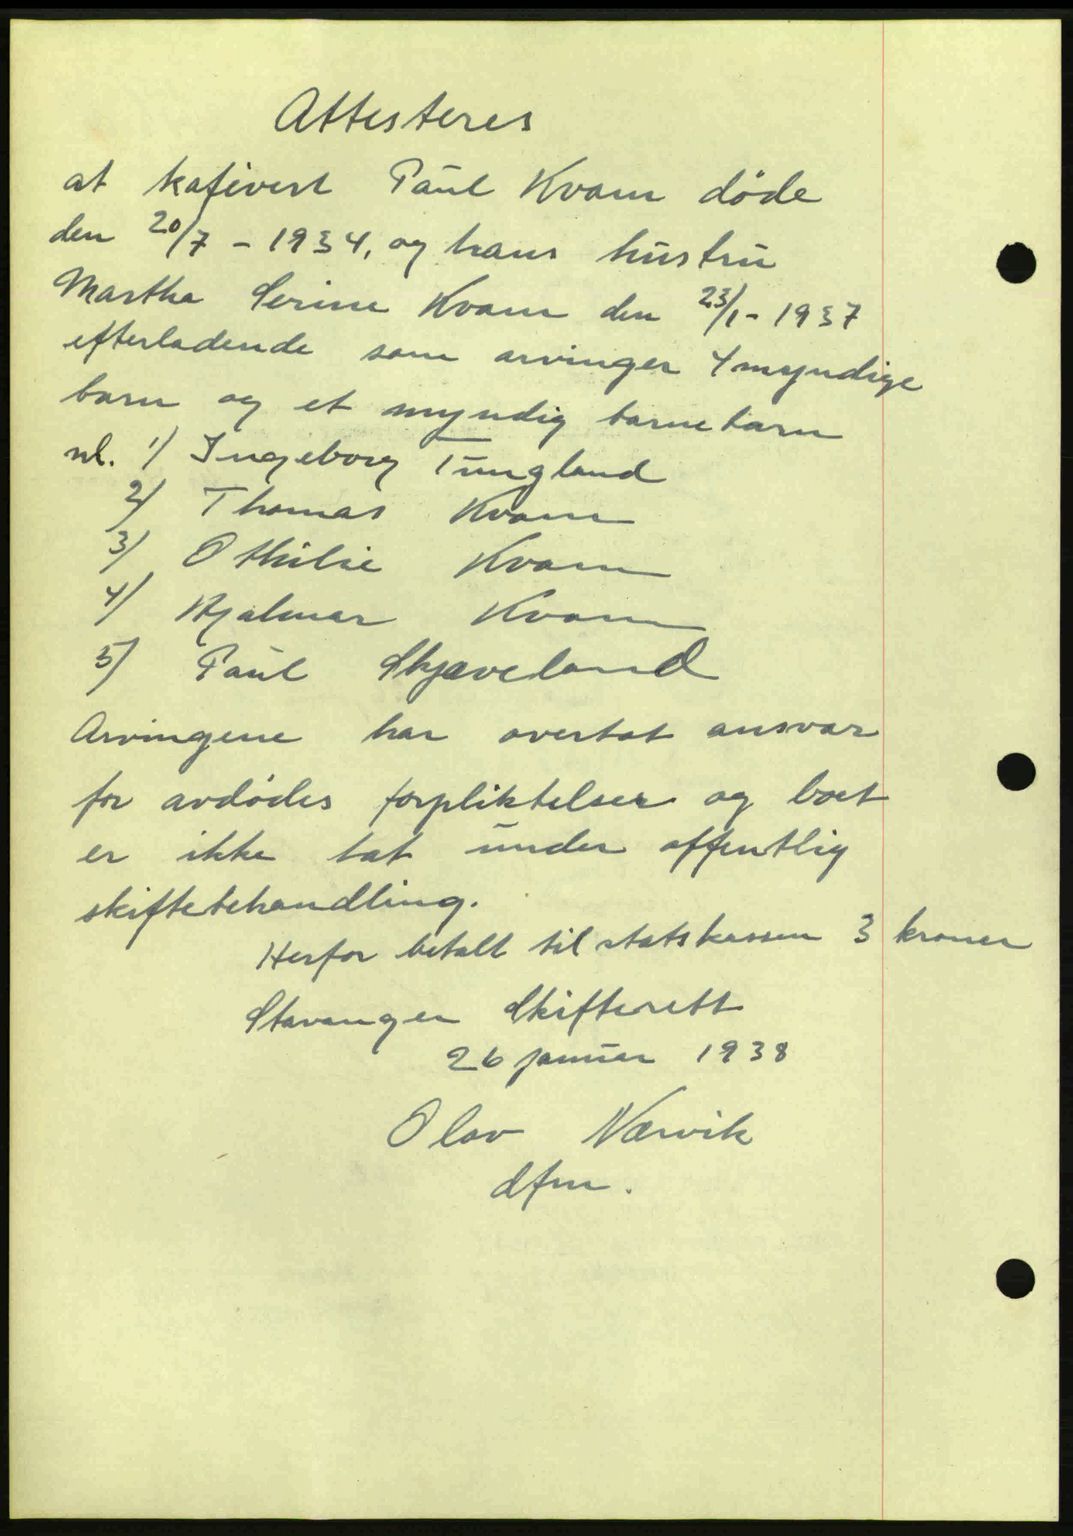 Attesteres
at kafévert Paul Kvam døde
den 20/7 - 1934, og hans hustru
Martha Serine Kvam den 23/1 - 1937
efterladende som arvinger 4 myndige
barn og et myndig barnebarn
nl. 1/ Ingeborg Tungland
2/ Thomas Kvam
3/ Othilie Kvam
4/ Hjalmar Kvam
5/ Paul Skjæveland
Arvingene har overtat ansvar
for avdødes forpliktelser og boet
er ikke tat under offentlig
skiftebehandling.
Herfor betalt til statskassen 3 kroner
Stavanger Skifterett
26 januar 1938
Olav Nærvik
dfm.